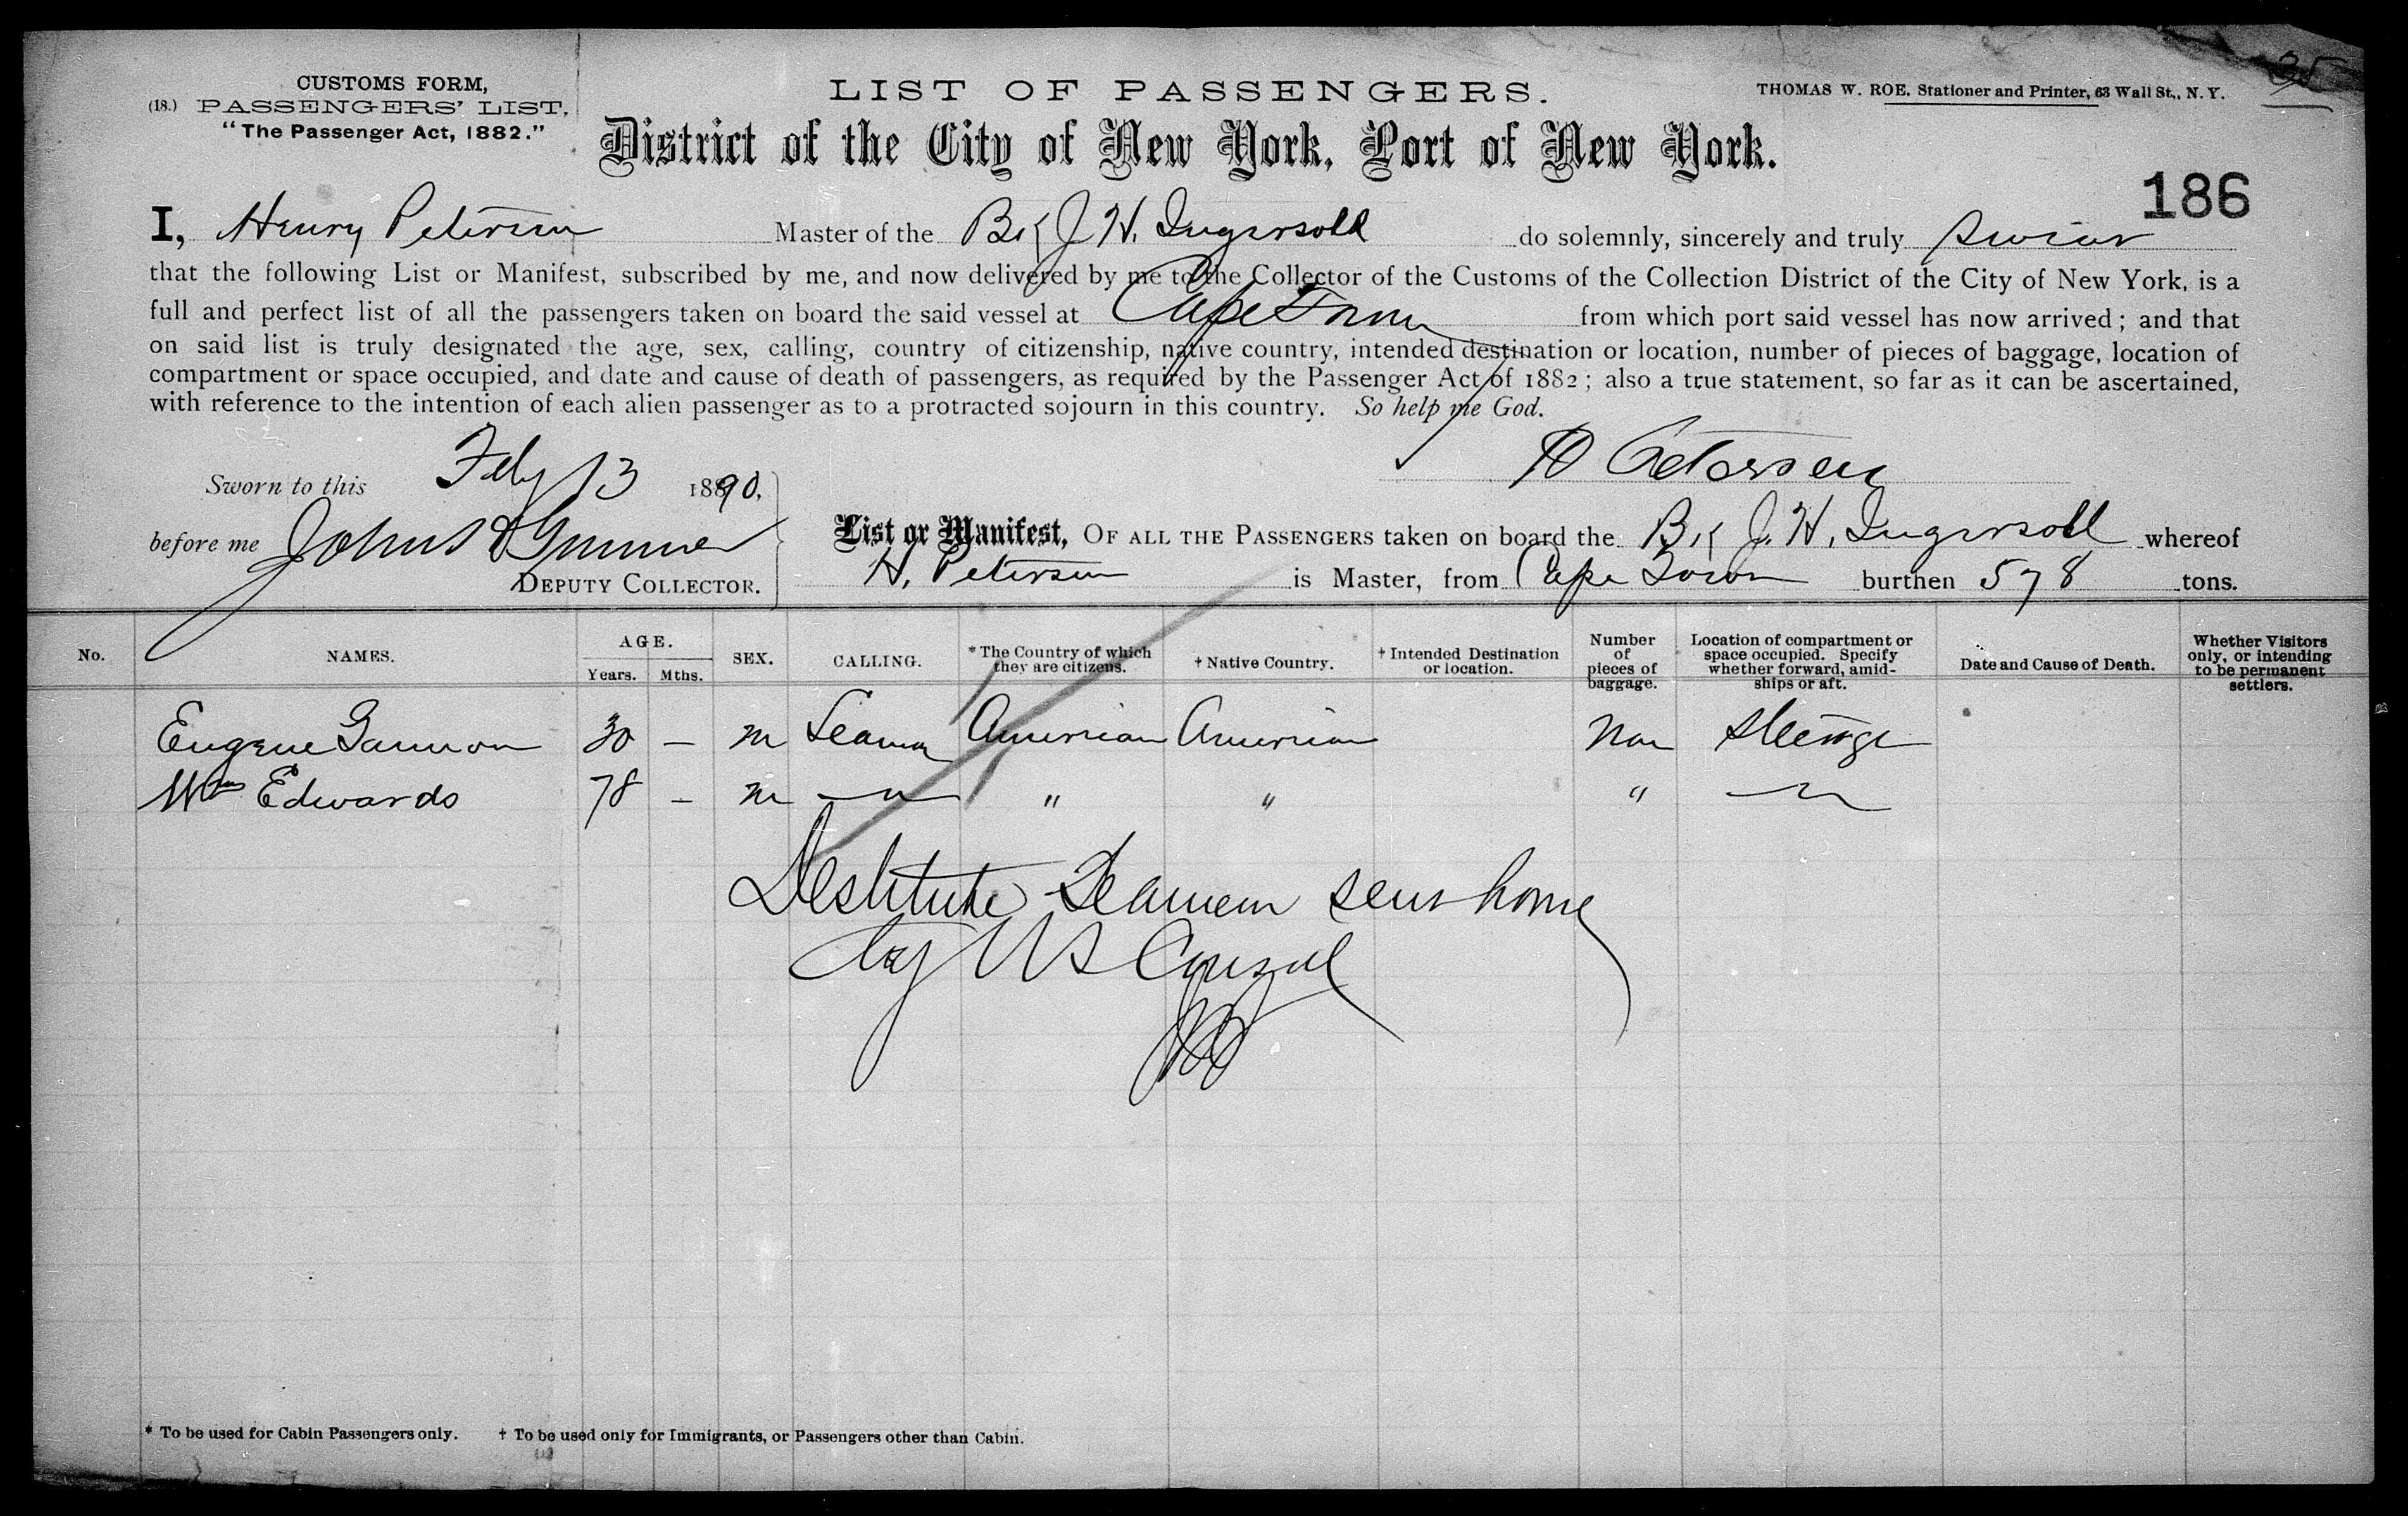 CUSTOMS FORM,
(18.) PASSENGERS' LIST,
"The Passenger Act, 1882."
LIST OF PASSENGERS.
THOMAS W. ROE, Stationer and Printer, 63 Wall St., N. Y.
35
District of the City of New York, Port of New York.
186
I, Henry Petersen Master of the Bk J. H. Ingersoll do solemnly, sincerely and truly swear
that the following List or Manifest, subscribed by me, and now delivered by me to the Collector of the Customs of the Collection District of the City of New York, is a
full and perfect list of all the passengers taken on board the said vessel at Cape Town from which port said vessel has now arrived; and that
on said list is truly designated the age, sex, calling, country of citizenship, native country, intended destination or location, number of pieces of baggage, location of
compartment or space occupied, and date and cause of death of passengers, as required by the Passenger Act of 1882; also a true statement, so far as it can be ascertained,
with reference to the intention of each alien passenger as to a protracted sojourn in this country. So help me God.
H Petersen
Sworn to this Feby 13 1890,
before me John
DEPUTY COLLECTOR.
List or Manifest, OF ALL THE PASSENGERS taken on board the Bk J. H. Ingersoll whereof
H. Petersen is Master, from Cape Town burthen 578 tons.
No. NAMES. AGE. Years. Mths. SEX. CALLING. * The Country of which they are citizens. † Native Country. † Intended Destination or location. Number of pieces of baggage. Location of compartment or space occupied. Specify whether forward, amidships or aft. Date and Cause of Death. Whether Visitors only, or intending to be permanent settlers.
Eugene Gannon 30 — m Seaman American American Non Steerage
Wm Edwards 78 — m " " " " "
Destitute Seamen sent home
by US Consul
* To be used for Cabin Passengers only. † To be used only for Immigrants, or Passengers other than Cabin.